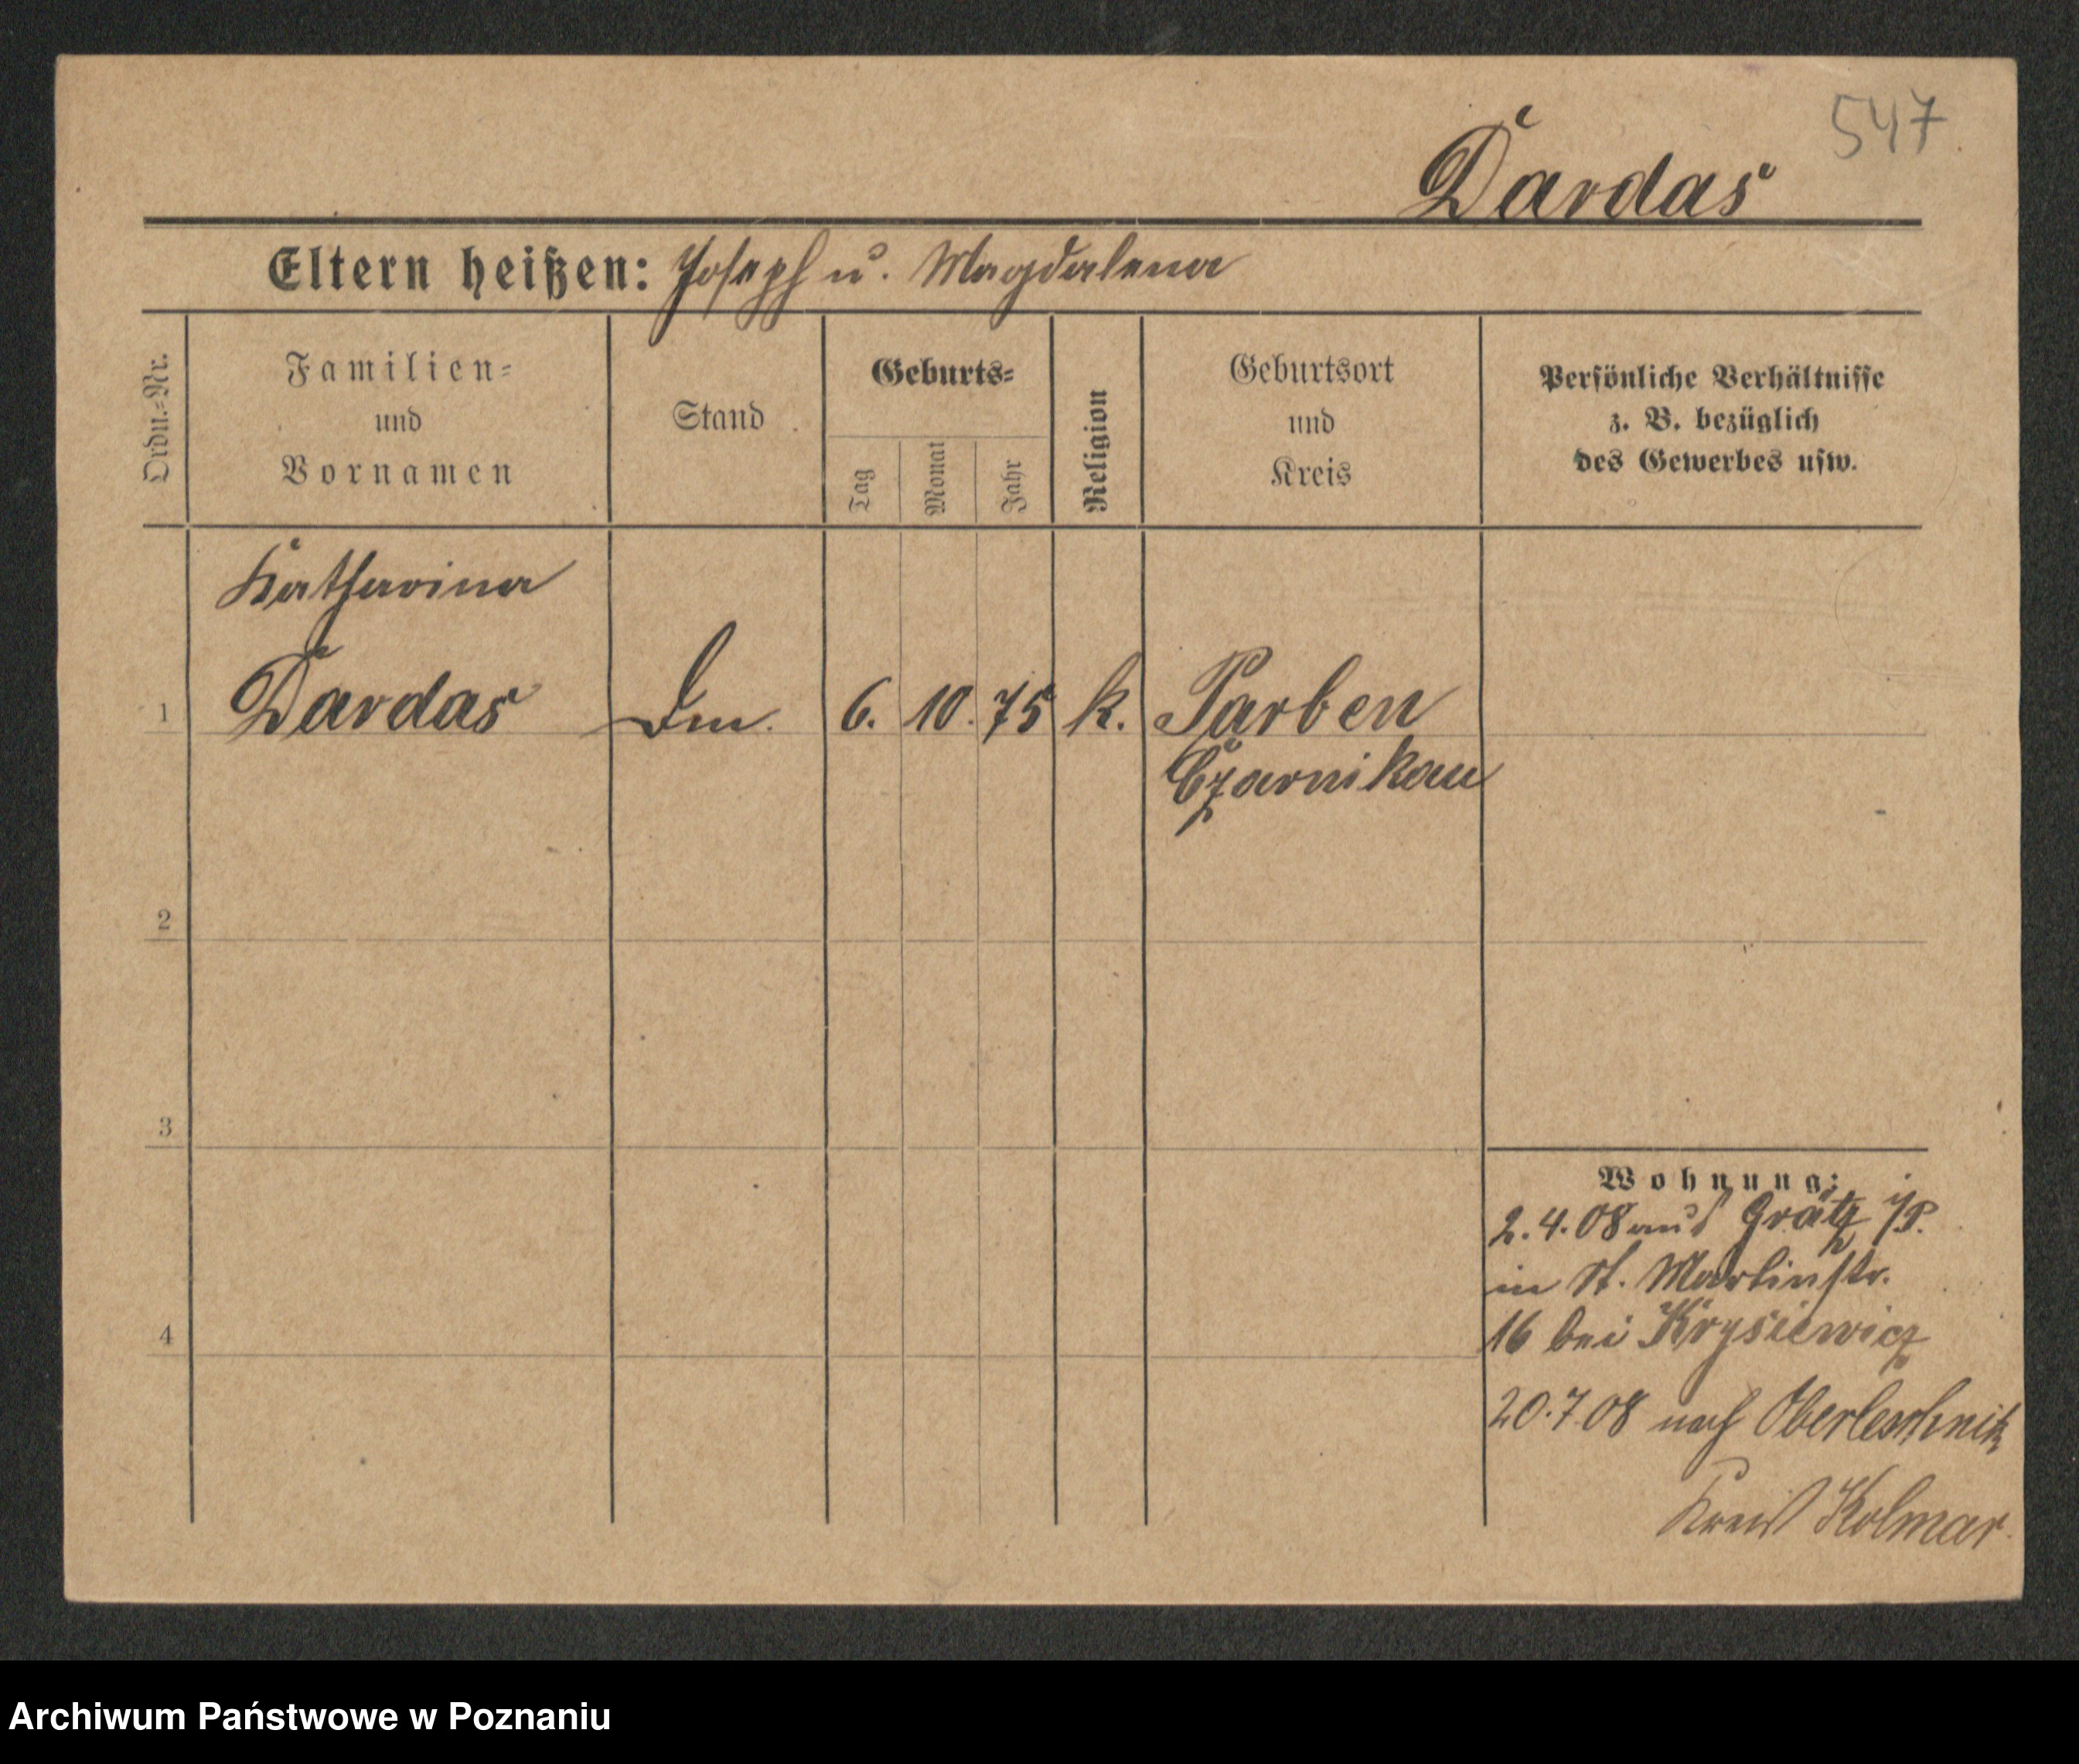 547
Dardas
Eltern heißen: Joseph u. Magdalena
Ordn.=Nr.
Familien=
und
Vornamen
Stand
Geburts=
Tag
Monat
Jahr
Religion
Geburtsort
und
Kreis
Persönliche Verhältnisse
z. B. bezüglich
des Gewerbes usw.
Katharina
1 Dardas Dm. 6. 10. 75 k. Parben
Czarnikau
2
3
4
Wohnung:
2.4.08 aus Grätz i/P.
in St. Martinstr.
16 bei Krysiewicz
20.7.08 nach Oberleschnitz
Kreis Kolmar.
Archiwum Państwowe w Poznaniu